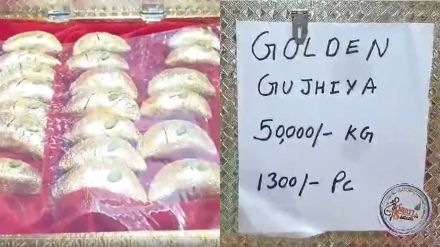 GOLDEN
GUJHIYA
50,000/- KG
1300/- Pc